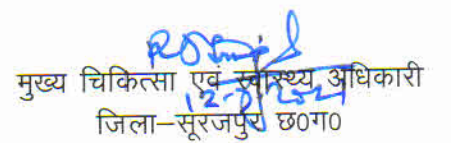 मुख्य चिकित्सा एवं स्वास्थ्य अधिकारी
जिला–सूरजपुर छ0ग0